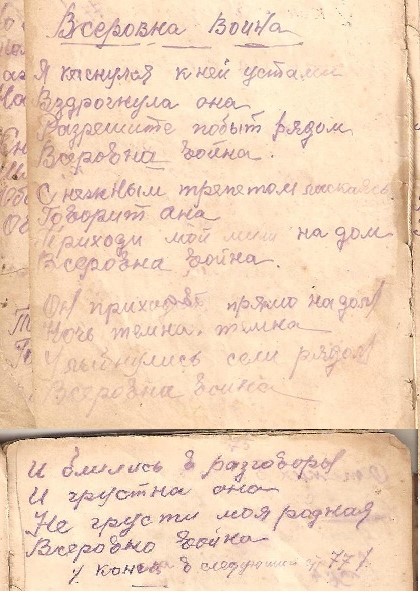 Всеровна Война
Я каснулся к ней устами
Вздрогнула она
Разрешите побыт рядом
Всеровна война.
С нежным трепетом ласкаясь
Говорит она
Приходи мой мил на дом
Всеровна война.
Он приходит прямо на дом
Ночь темна, темна
Улыбнулись сели рядом
Всеровна война
И влились в разговоры
И грустна она
Не грусти моя родная
Всеровно война
конец в следующий 777